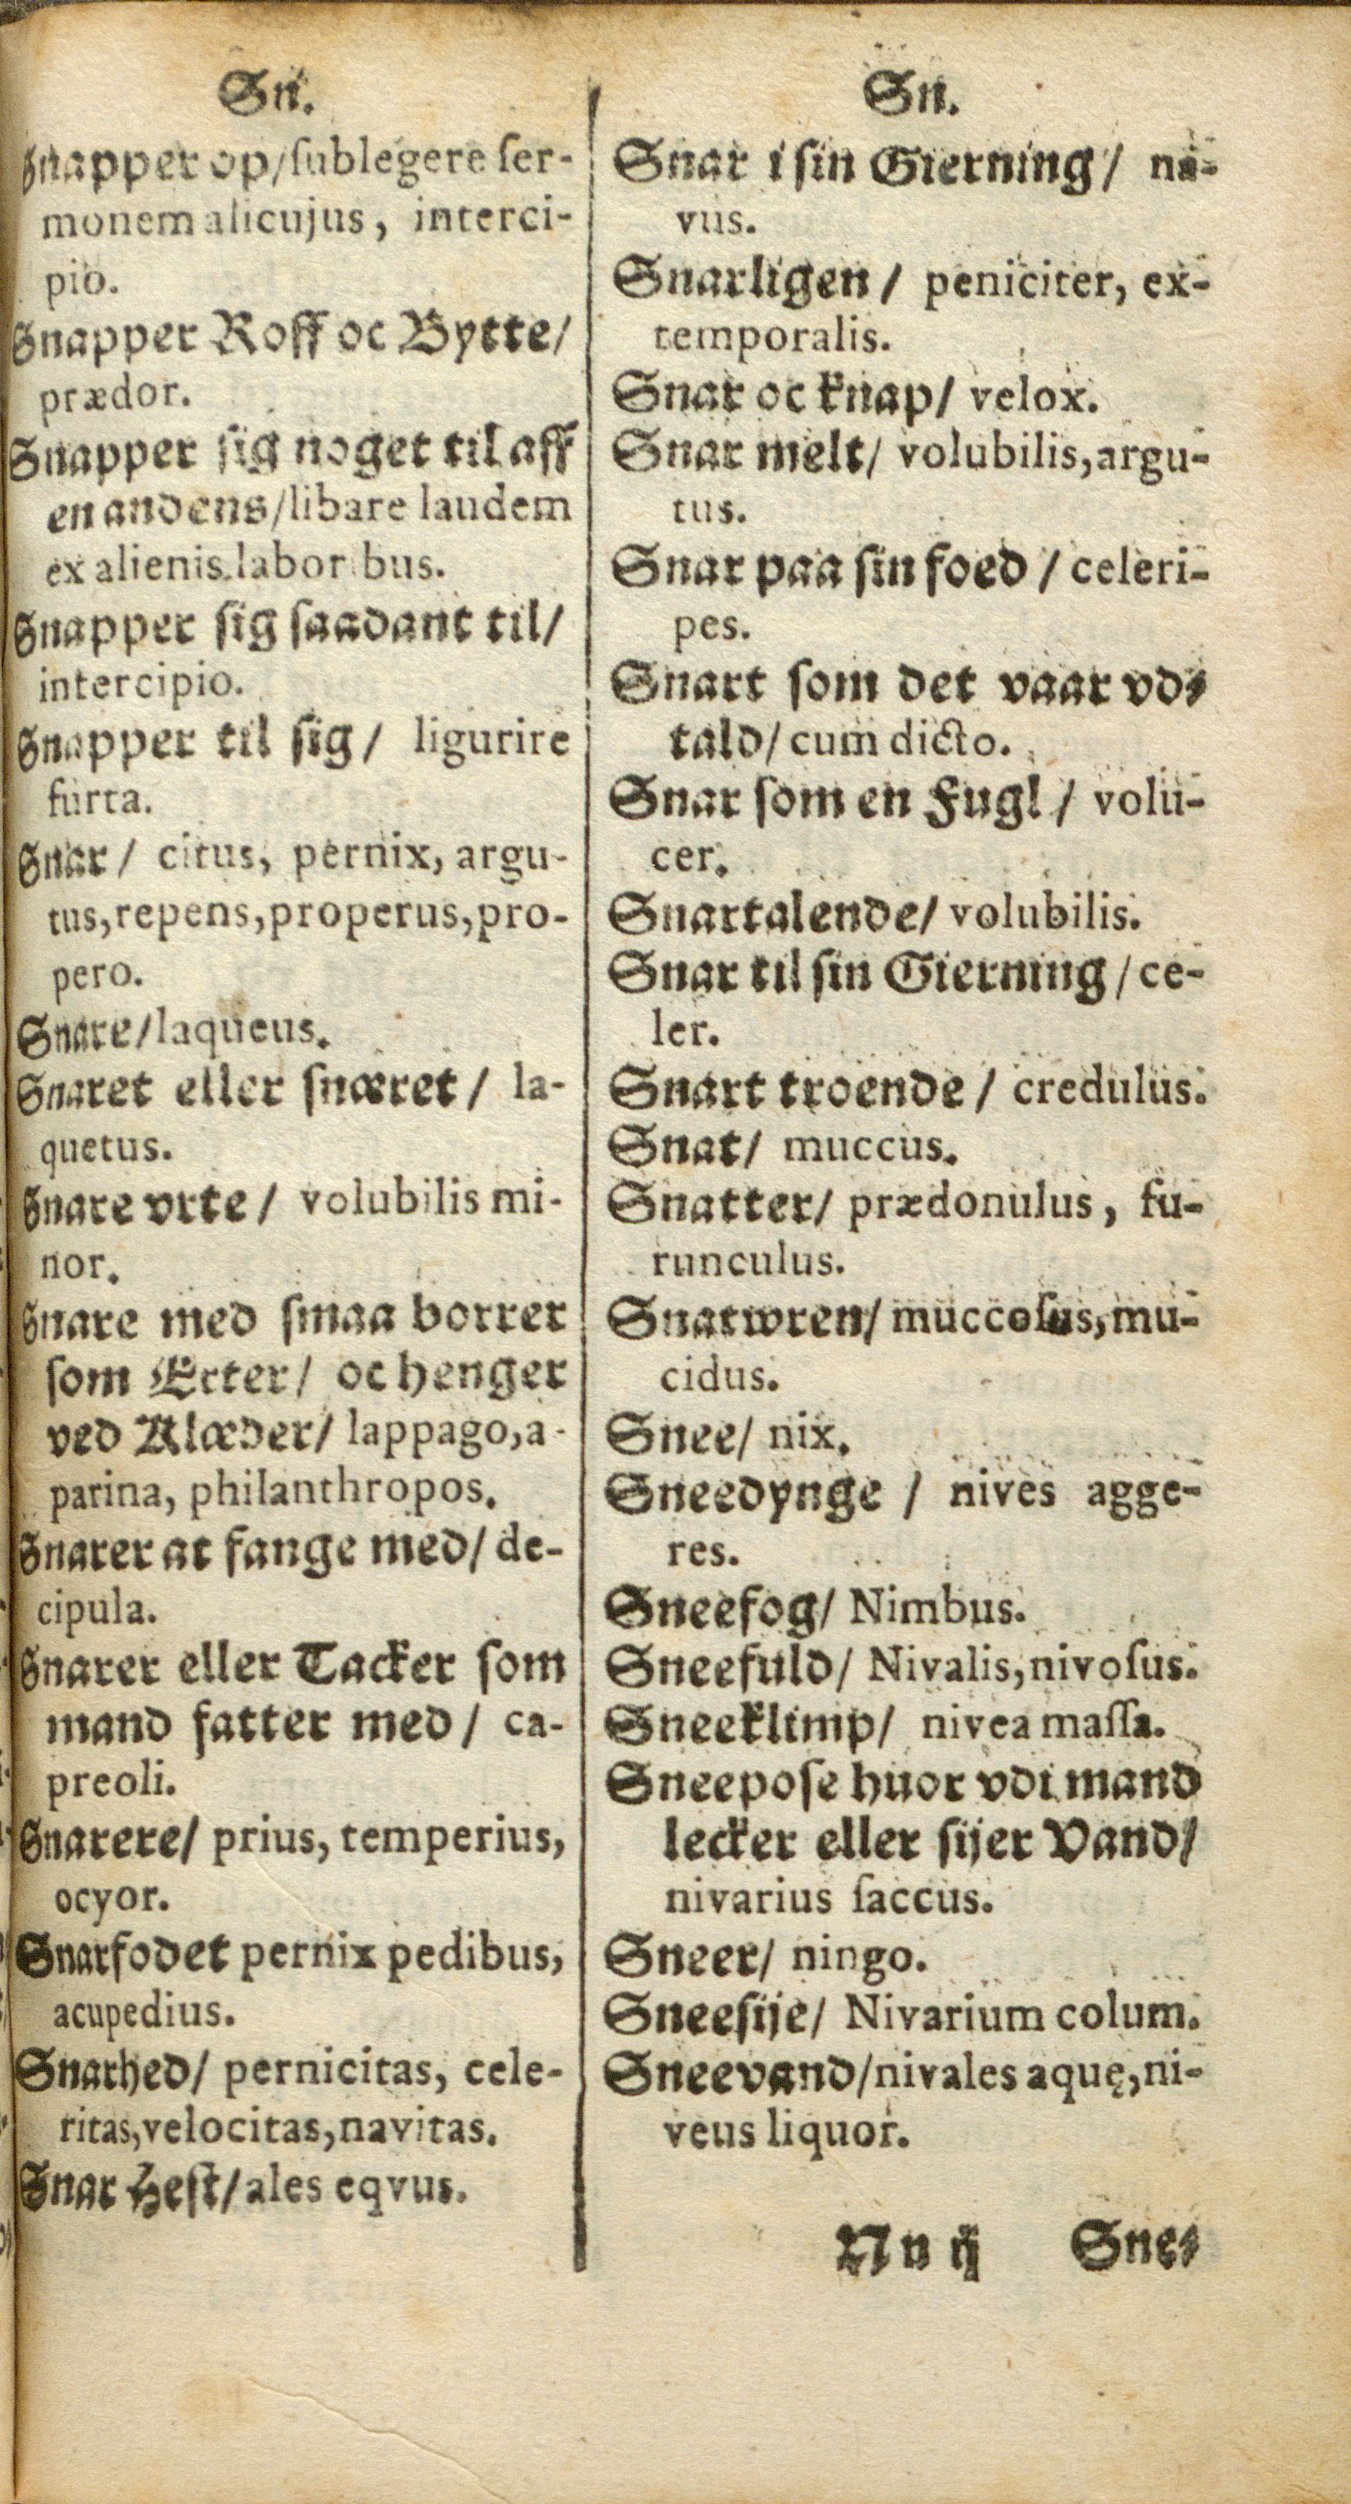 Sn.
Snapper op/ſublegere ſer-
monem alicujus, interci-
pio.
Snapper Roff oc Bytte/
prædor.
Snapper ſig noget til aff
en andens/libare laudem
ex alienis laboribus.
Snapper ſig ſaadant til/
intercipio.
Snapper til ſig/ ligurire
furta.
Snar/ citus, pernix, argu-
tus,repens,properus,pro-
pero.
Snare/laqueus.
Snaret eller ſnæret/ la-
quetus.
Snare vrte/ volubilis mi-
nor.
Snare med ſmaa borrer
ſom Erter/ oc henger
ved Klæder/ lappago,a-
parina, philanthropos.
Snarer at fange med/ de-
cipula.
Snarer eller Tacker ſom
mand fatter med/ ca-
preoli.
Snarere/ prius, temperius,
ocyor.
Snarfodet pernix pedibus,
acupedius.
Snarhed/ pernicitas, cele-
ritas,velocitas,navitas.
Snar Heſt/ales eqvus.
Sn.
Snar i ſin Gierning/ na-
vus.
Snarligen/ peniciter, ex-
temporalis.
Snar oc knap/ velox.
Snar melt/ volubilis,argu-
tus.
Snar paa ſin foed/ celeri-
pes.
Snart ſom det vaar vd-
tald/cum dicto.
Snar ſom en Fugl/ volu-
cer.
Snartalende/ volubilis.
Snar til ſin Gierning/ce-
ler.
Snart troende/ credulus.
Snat/ muccus.
Snatter/ prædonulus, fu-
runculus.
Snatwren/ muccoſus,mu-
cidus.
Snee/ nix.
Sneedynge / nives agge-
res.
Sneefog/ Nimbus.
Sneefuld/ Nivalis,nivoſus.
Sneeklimp/ nivea maſſa.
Sneepoſe huor vdi mand
lecker eller ſijer Vand/
nivarius ſaccus.
Sneer/ ningo.
Sneeſije/ Nivarium colum.
Sneevand/nivales aquę,ni-
veus liquor.
Nn ij Sne-